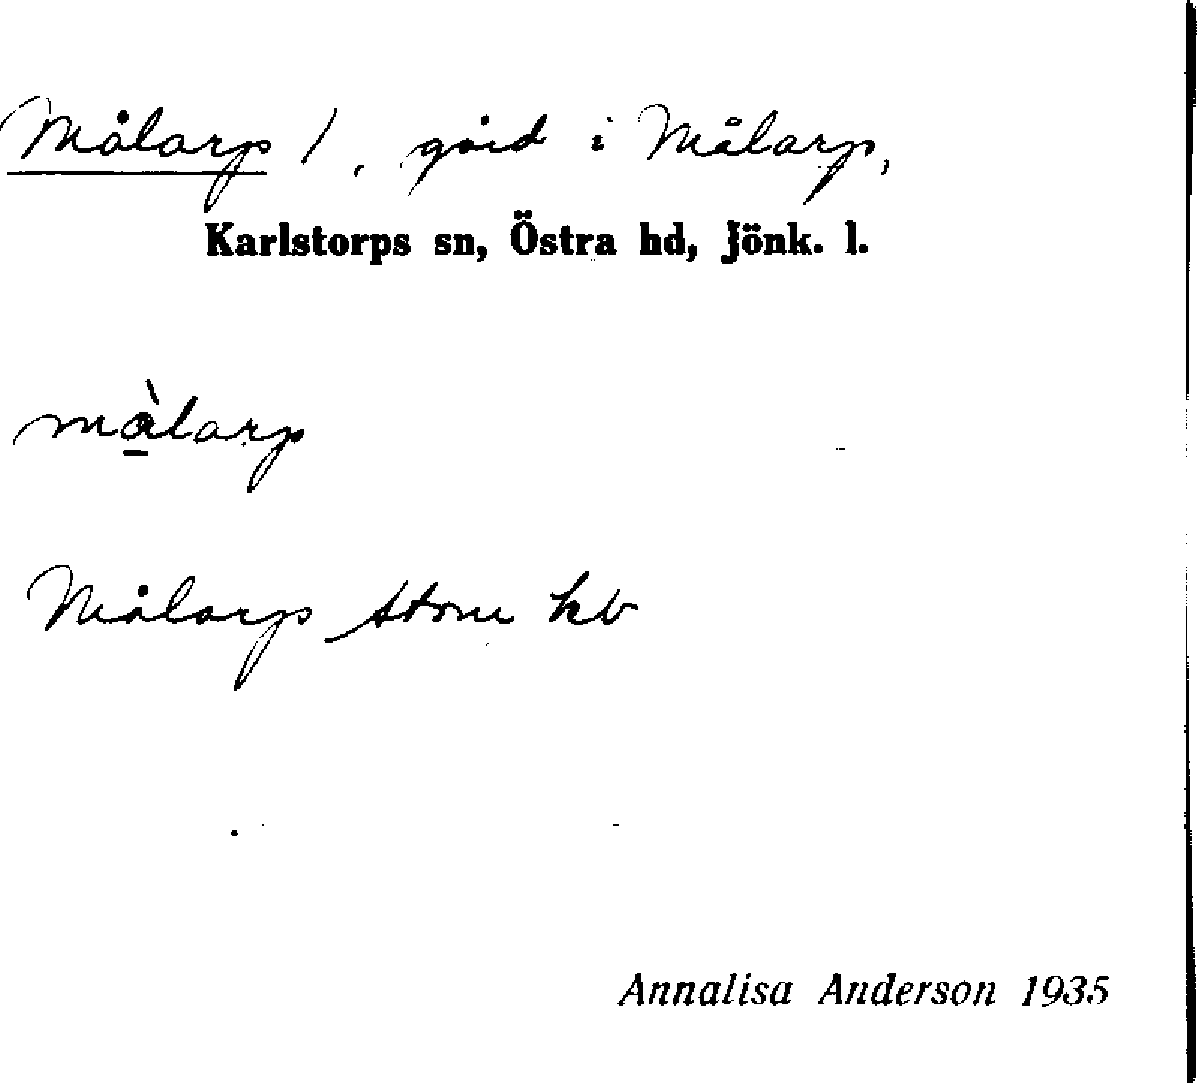 Målarp 1, gård i Målarp,
Karlstorps sn, Östra hd, Jönk. l.
målarp
Målarp Stom kb
Annalisa Anderson 1935